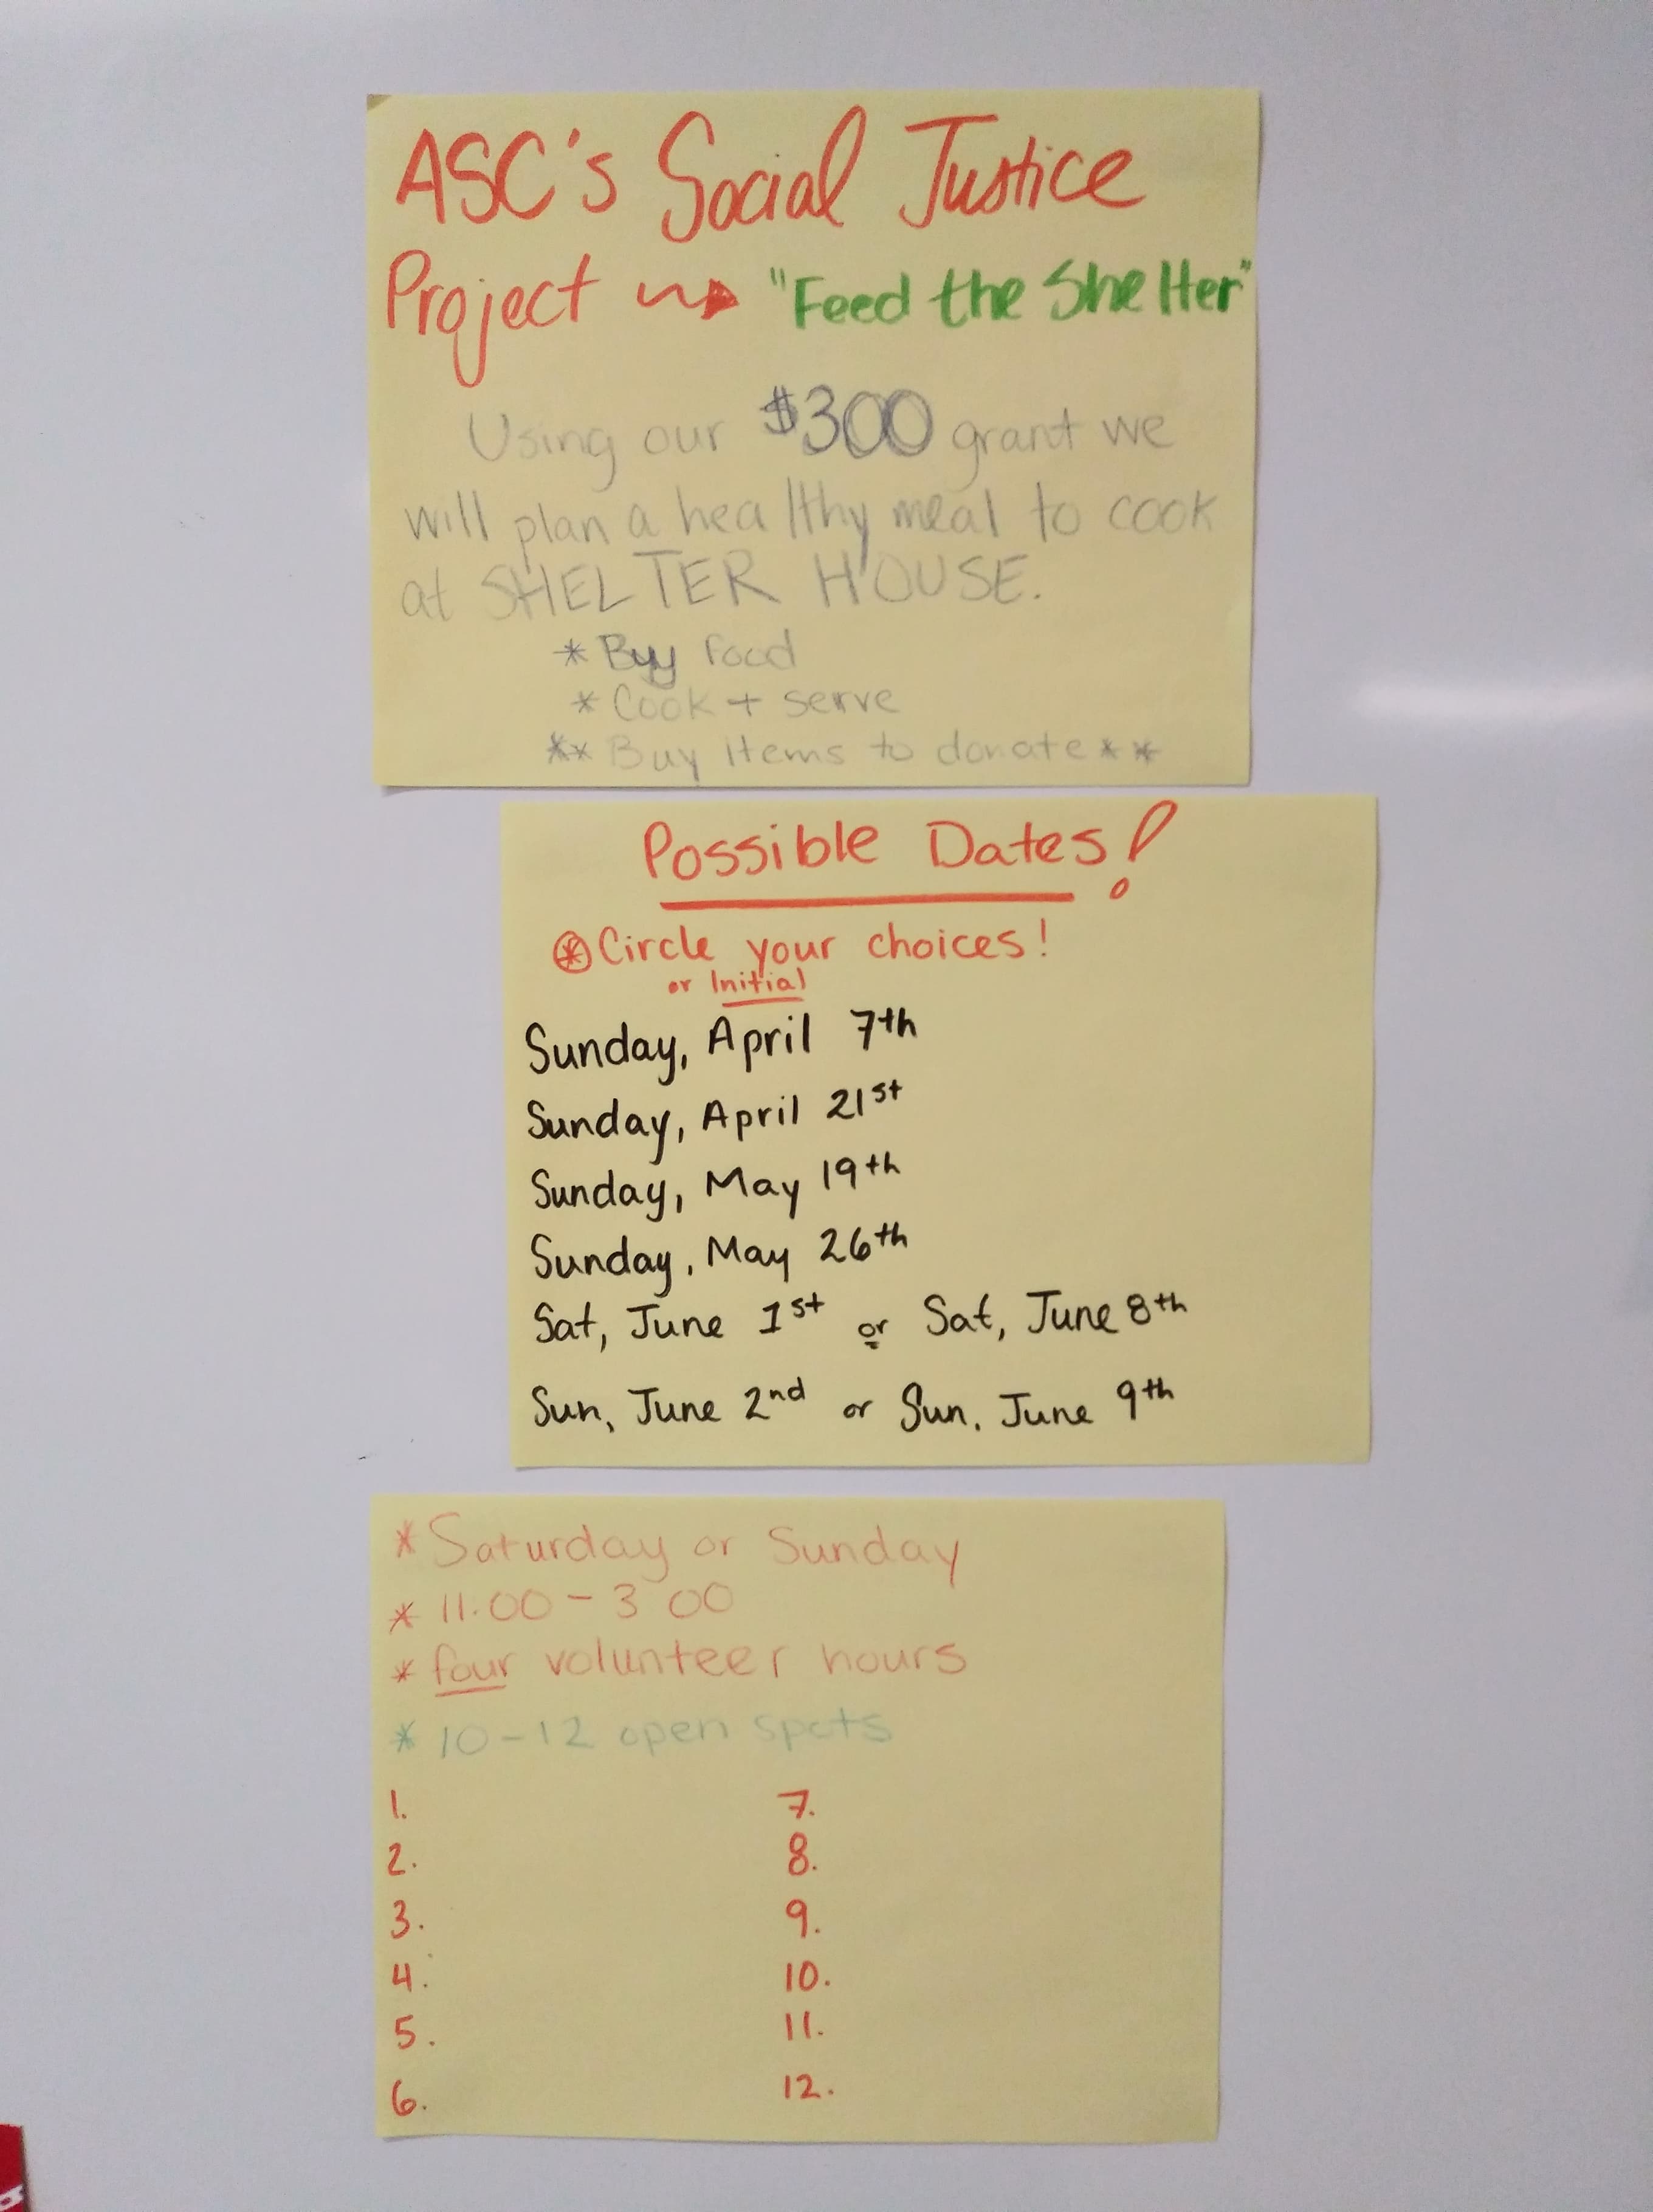 ASC's Social Justice
Project → "Feed the Shelter"
Using our $300 grant we
will plan a healthy meal to cook
at SHELTER HOUSE.
* Buy food
* Cook + serve
** Buy items to donate **
Possible Dates!
* Circle your choices!
or Initial
Sunday, April 7th
Sunday, April 21st
Sunday, May 19th
Sunday, May 26th
Sat, June 1st or Sat, June 8th
Sun, June 2nd or Sun. June 9th
* Saturday or Sunday
* 11:00 - 3:00
* four volunteer hours
* 10-12 open spots
1. 7.
2. 8.
3. 9.
4. 10.
5. 11.
6. 12.